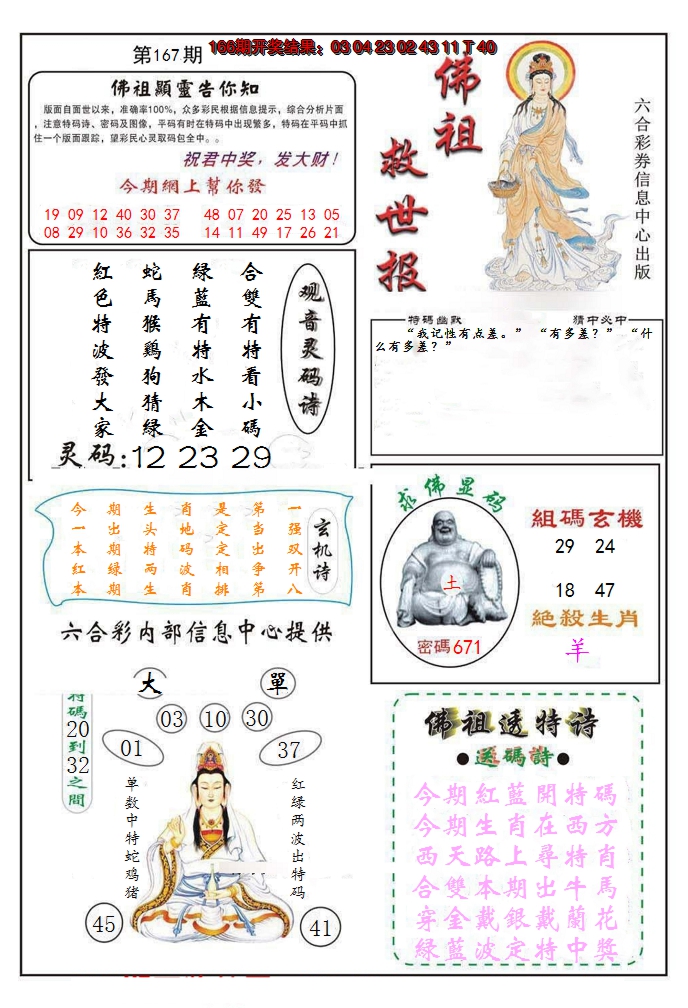 第167期
166期开奖结果：03 04 23 02 43 11丁40
佛祖顯靈告你知
版面自面世以来，准确率100%，众多彩民根据信息提示，综合分析片面
，注意特码诗、密码及图像，平码有时在特码中出现繁多，特码在平码中抓
住一个版面跟踪，望彩民心灵取码包全中。。
祝君中奖，发大财！
今期網上幫你發
19 09 12 40 30 37 48 07 20 25 13 05
08 29 10 36 32 35 14 11 49 17 26 21
佛祖
救世报
六合彩券信息中心出版
观音灵码诗
合雙有特看小碼
綠藍有特水木金
蛇馬猴鷄狗猜綠
紅色特波發大家
灵码:12 23 29
特码幽默
猜中必中
“我记性有点差。” “有多差？” “什
么有多差？”
玄机诗
一强双开八
第当出争第
是定定相排
肖地码波肖
生头特两生
期出期绿期
今一本红本
六合彩内部信息中心提供
求佛显码
土
密碼671
組碼玄機
29 24
18 47
絶殺生肖
羊
大
單
特碼20到32之間
03
10
30
01
37
单数中特蛇鸡猪
红绿两波出特码
45
41
佛祖透特诗
●送碼詩●
今期紅藍開特碼
今期生肖在西方
西天路上尋特肖
合雙本期出牛馬
穿金戴銀戴蘭花
綠藍波定特中獎